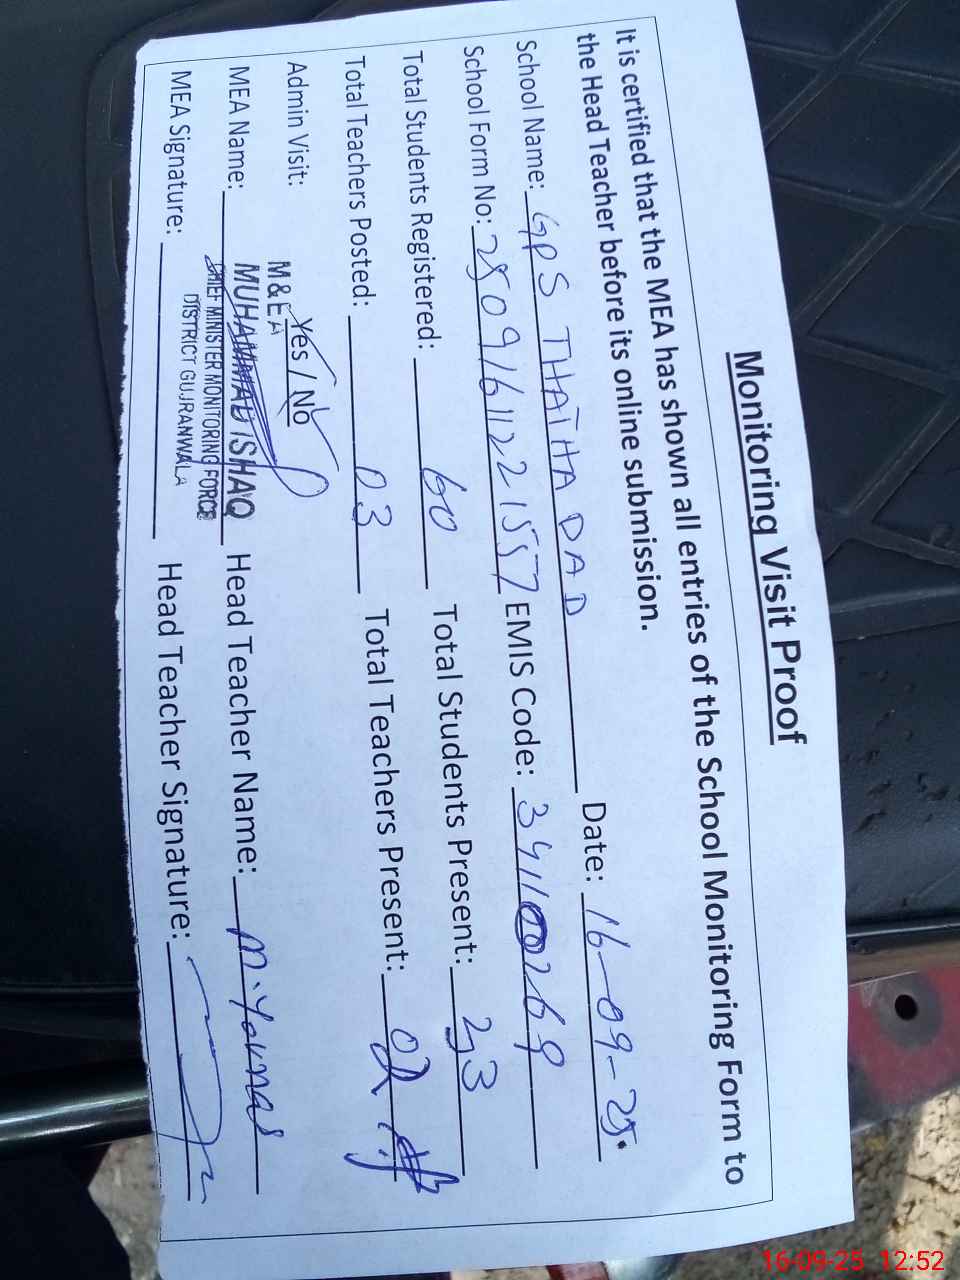 Monitoring Visit Proof
It is certified that the MEA has shown all entries of the School Monitoring Form to
the Head Teacher before its online submission.
School Name: GPS THATHA DAD Date: 16-09-25
School Form No: 25091611221557 EMIS Code: 34100269
Total Students Registered: 60 Total Students Present: 23
Total Teachers Posted: 03 Total Teachers Present: 02
Admin Visit: Yes / No
M&EA
MEA Name: MUHAMMAD ISHAQ Head Teacher Name: M. Younas
CHIEF MINISTER MONITORING FORCE
DISTRICT GUJRANWALA
MEA Signature: Head Teacher Signature:
16-09-25 12:52